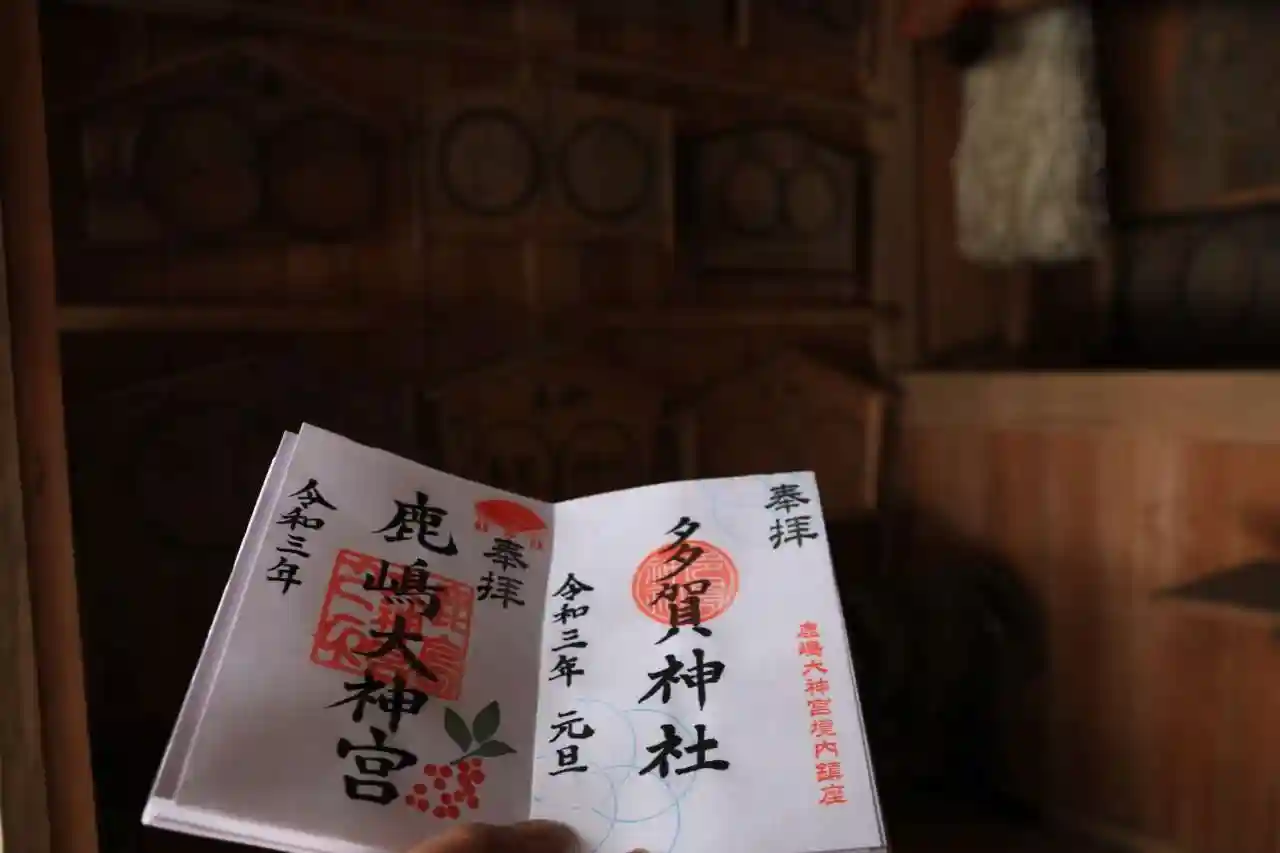 奉拝
鹿嶋大神宮境内鎮座
多賀神社
令和三年 元旦
奉拝
鹿嶋大神宮
令和三年